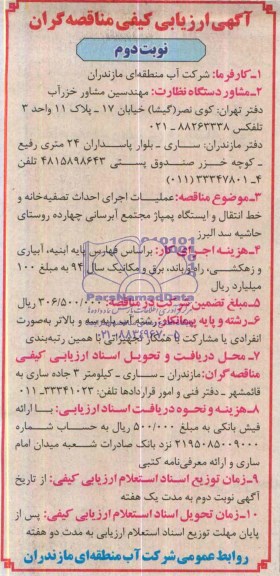 آگهی ارزیابی کیفی مناقصه گران
نوبت دوم
۱ـ کارفرما: شرکت آب منطقه‌ای مازندران
۲ـ مشاور دستگاه نظارت: مهندسین مشاور خزرآب
دفتر تهران: کوی نصر (گیشا) خیابان ۱۷ ـ پلاک ۱۱ واحد ۳
تلفکس ۸۸۲۶۳۳۳۸ ـ ۰۲۱
دفتر مازندران: ساری ـ بلوار پاسداران ۲۴ متری رفیع
ـ کوچه خزر صندوق پستی ۴۸۱۵۸۹۸۶۴۳ تلفن
۴ـ ۳۳۳۴۷۸۰۱ (۰۱۱)
۳ـ موضوع مناقصه: عملیات اجرای احداث تصفیه‌خانه و
خط انتقال و ایستگاه پمپاژ مجتمع آبرسانی چهارده روستای
حاشیه سد البرز
۴ـ هزینه اجرای کار: براساس فهارس پایه ابنیه، آبیاری
و زهکشی، راه و باند، برق و مکانیک سال ۹۴ به مبلغ ۱۰۰
میلیارد ریال
۵ـ مبلغ تضمین شرکت در مناقصه: ۳۰۶/۵۰۰/۰۰۰ ریال
۶ـ رشته و پایه پیمانکار: رشته آب پایه سه و بالاتر به‌صورت
انفرادی یا مشارکت با همین رتبه‌بندی
۷ـ محل دریافت و تحویل اسناد ارزیابی کیفی
مناقصه گران: مازندران ـ ساری ـ کیلومتر ۳ جاده ساری به
قائمشهر ـ دفتر فنی و امور قراردادها تلفن: ۳۳۳۴۱۰۲۳ـ ۰۱۱
۸ـ هزینه و نحوه دریافت اسناد ارزیابی: با ارائه
فیش بانکی به مبلغ ۵۰۰/۰۰۰ ریال به حساب شماره
۲۱۹۵۰۸۵۰۰۹۰۰۰ نزد بانک صادرات شعبه میدان امام
ساری و ارائه معرفی‌نامه کتبی
۹ـ زمان توزیع اسناد استعلام ارزیابی کیفی: از تاریخ
آگهی نوبت دوم به مدت یک هفته
۱۰ـ زمان تحویل اسناد استعلام ارزیابی کیفی: پس از
پایان مهلت توزیع اسناد استعلام ارزیابی به مدت دو هفته
روابط عمومی شرکت آب منطقه‌ای مازندران